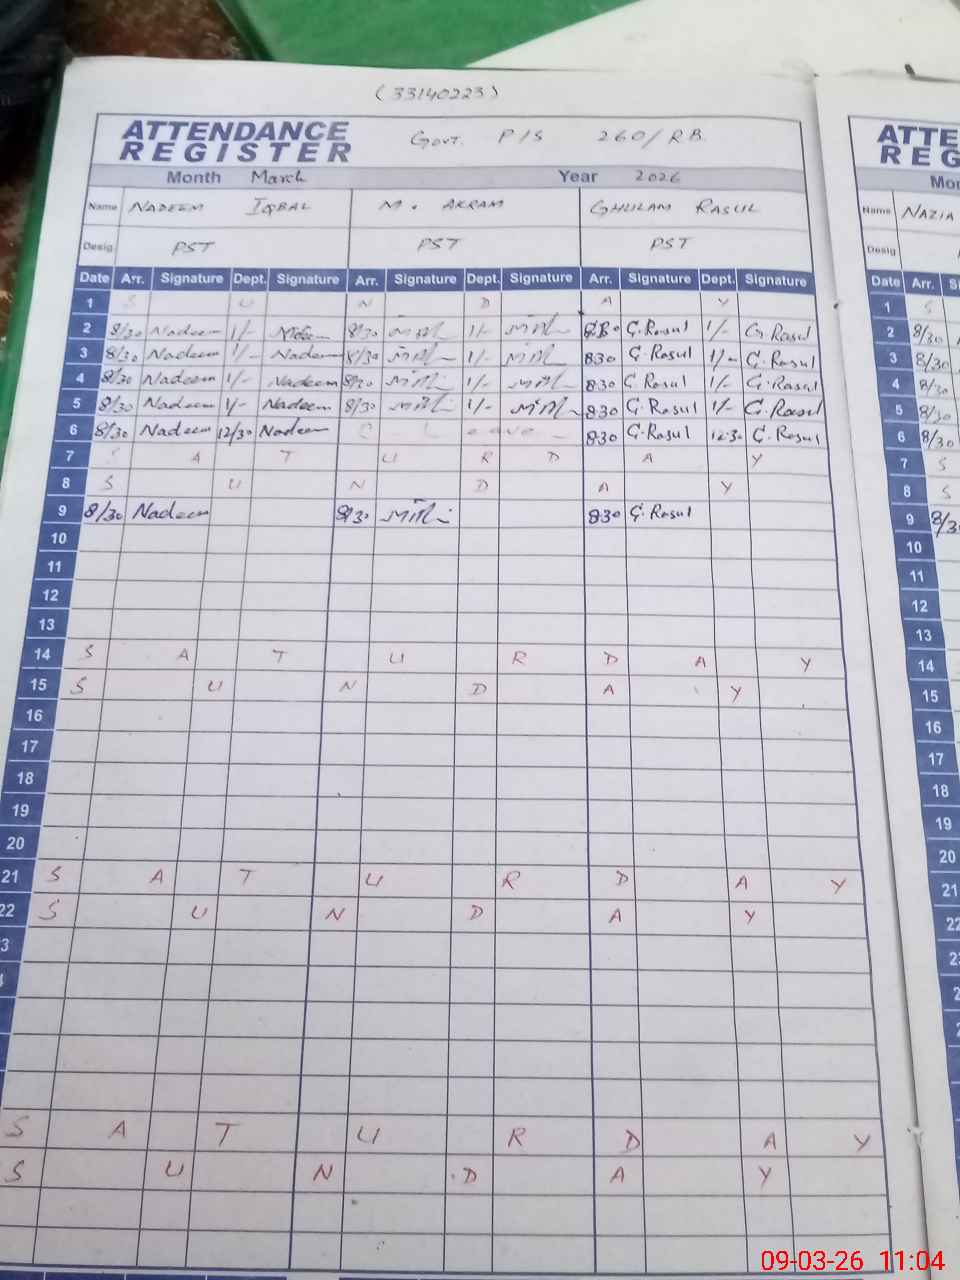 (33140223)
ATTENDANCE REGISTER Govt. P/S 260/RB.
Month March Year 2026
Name NADEEM IQBAL M. AKRAM GHULAM RASUL
Desig. PST PST PST
Date Arr. Signature Dept. Signature Arr. Signature Dept. Signature Arr. Signature Dept. Signature
1 S U N D A Y
2 8/30 Nadeem 1/- Nadeem 8/30 1/- 8:30 G.Rasul 1/- G.Rasul
3 8/30 Nadeem 1/- Nadeem 8/30 1/- 830 G.Rasul 1/- G.Rasul
4 8/30 Nadeem 1/- Nadeem 8/30 1/- 830 G.Rasul 1/- G.Rasul
5 8/30 Nadeem 1/- Nadeem 8/30 1/- 830 G.Rasul 1/- G.Rasul
6 8/30 Nadeem 12/30 Nadeem C Leave 830 G.Rasul 12:30 G.Rasul
7 S A T U R D A Y
8 S U N D A Y
9 8/30 Nadeem 8/30 830 G.Rasul
10
11
12
13
14 S A T U R D A Y
15 S U N D A Y
16
17
18
19
20
21 S A T U R D A Y
22 S U N D A Y
3
S A T U R D A Y
S U N D A Y
ATTE
REG
Mo
Name NAZIA
Desig.
Date Arr. Si
1 S
2 8/30
3 8/30
4 8/30
5 8/30
6 8/30
7 S
8 S
9 8/3
10
11
12
13
14
15
16
17
18
19
20
21
22
2
2
09-03-26 11:04